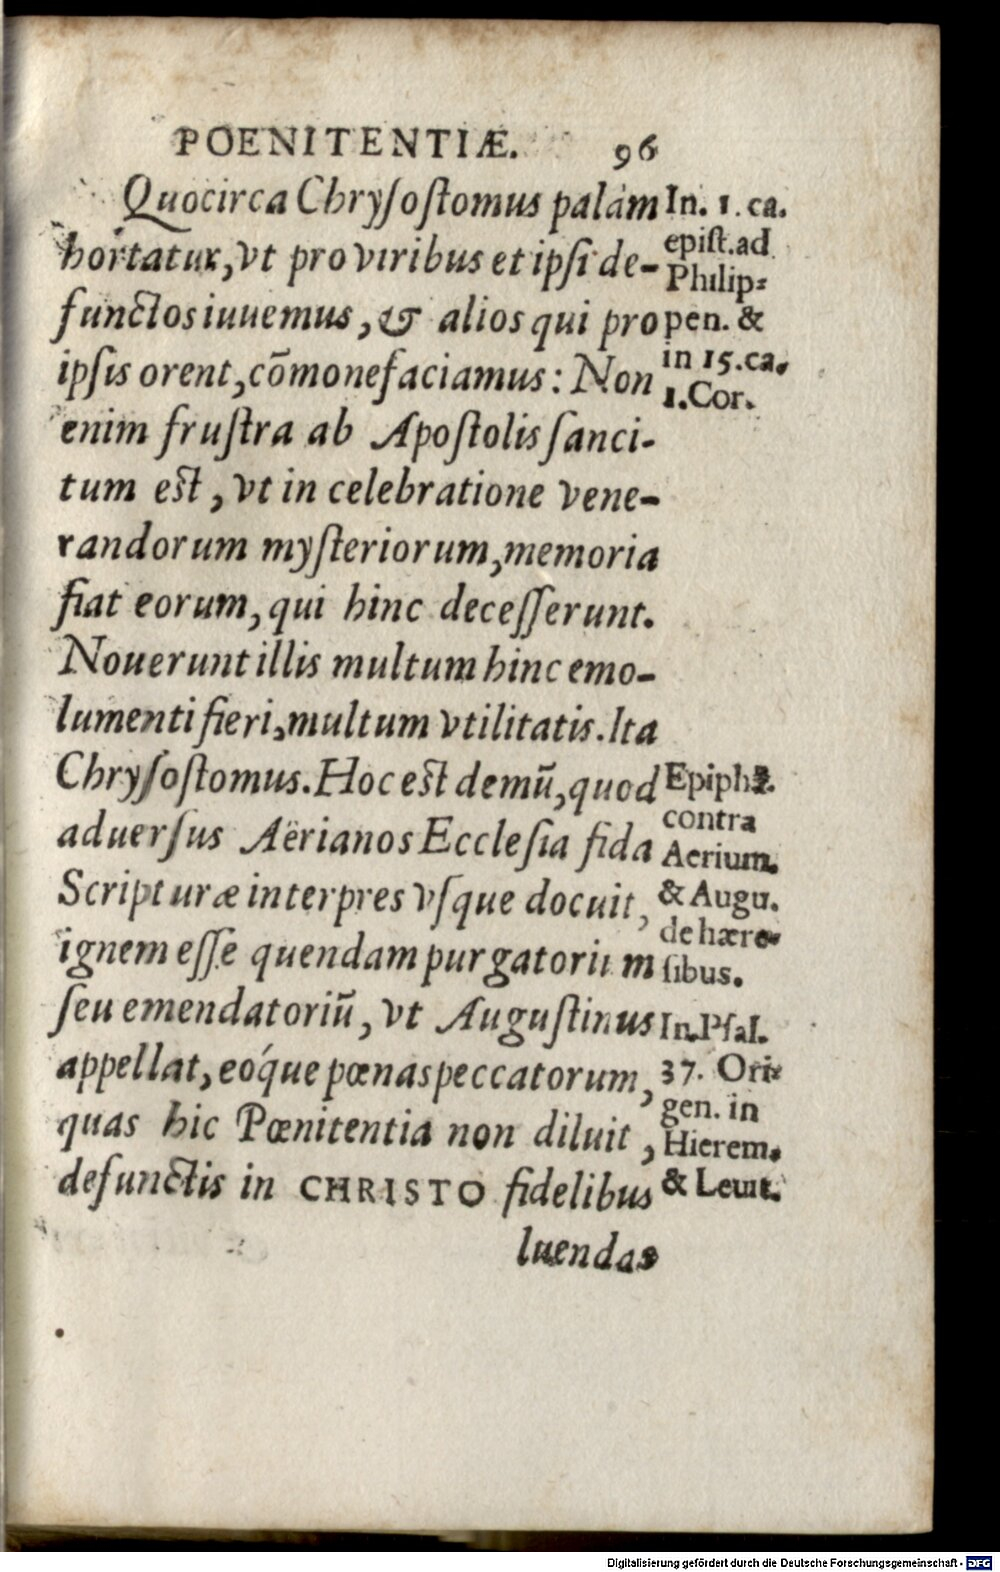 POENITENTIÆ. 96
Quocirca Chryſoſtomus palàm
hortatur, vt pro viribus et ipſi de-
functos iuuemus, & alios qui pro
ipſis orent, cōmonefaciamus: Non
enim fruſtra ab Apoſtolis ſanci-
tum est, vt in celebratione vene-
randorum myſteriorum, memoria
fiat eorum, qui hinc deceſſerunt.
Nouerunt illis multum hinc emo-
lumenti fieri, multum vtilitatis. Ita
Chryſoſtomus. Hoc est demū, quod
aduerſus Aërianos Eccleſia fida
Scripturæ interpres vſque docuit,
ignem eſſe quendam purgatorium
ſeu emendatoriū, vt Auguſtinus
appellat, eóque pœnas peccatorum,
quas hic Pœnitentia non diluit,
defunctis in CHRISTO fidelibus
luendas
In. 1. ca.
epiſt. ad
Philip-
pen. &
in 15. ca.
1. Cor.
Epipha.
contra
Aerium.
& Augu.
de hære-
ſibus.
In. Pſal.
37. Ori-
gen. in
Hierem.
& Leuit.
Digitalisierung gefördert durch die Deutsche Forschungsgemeinschaft - DFG